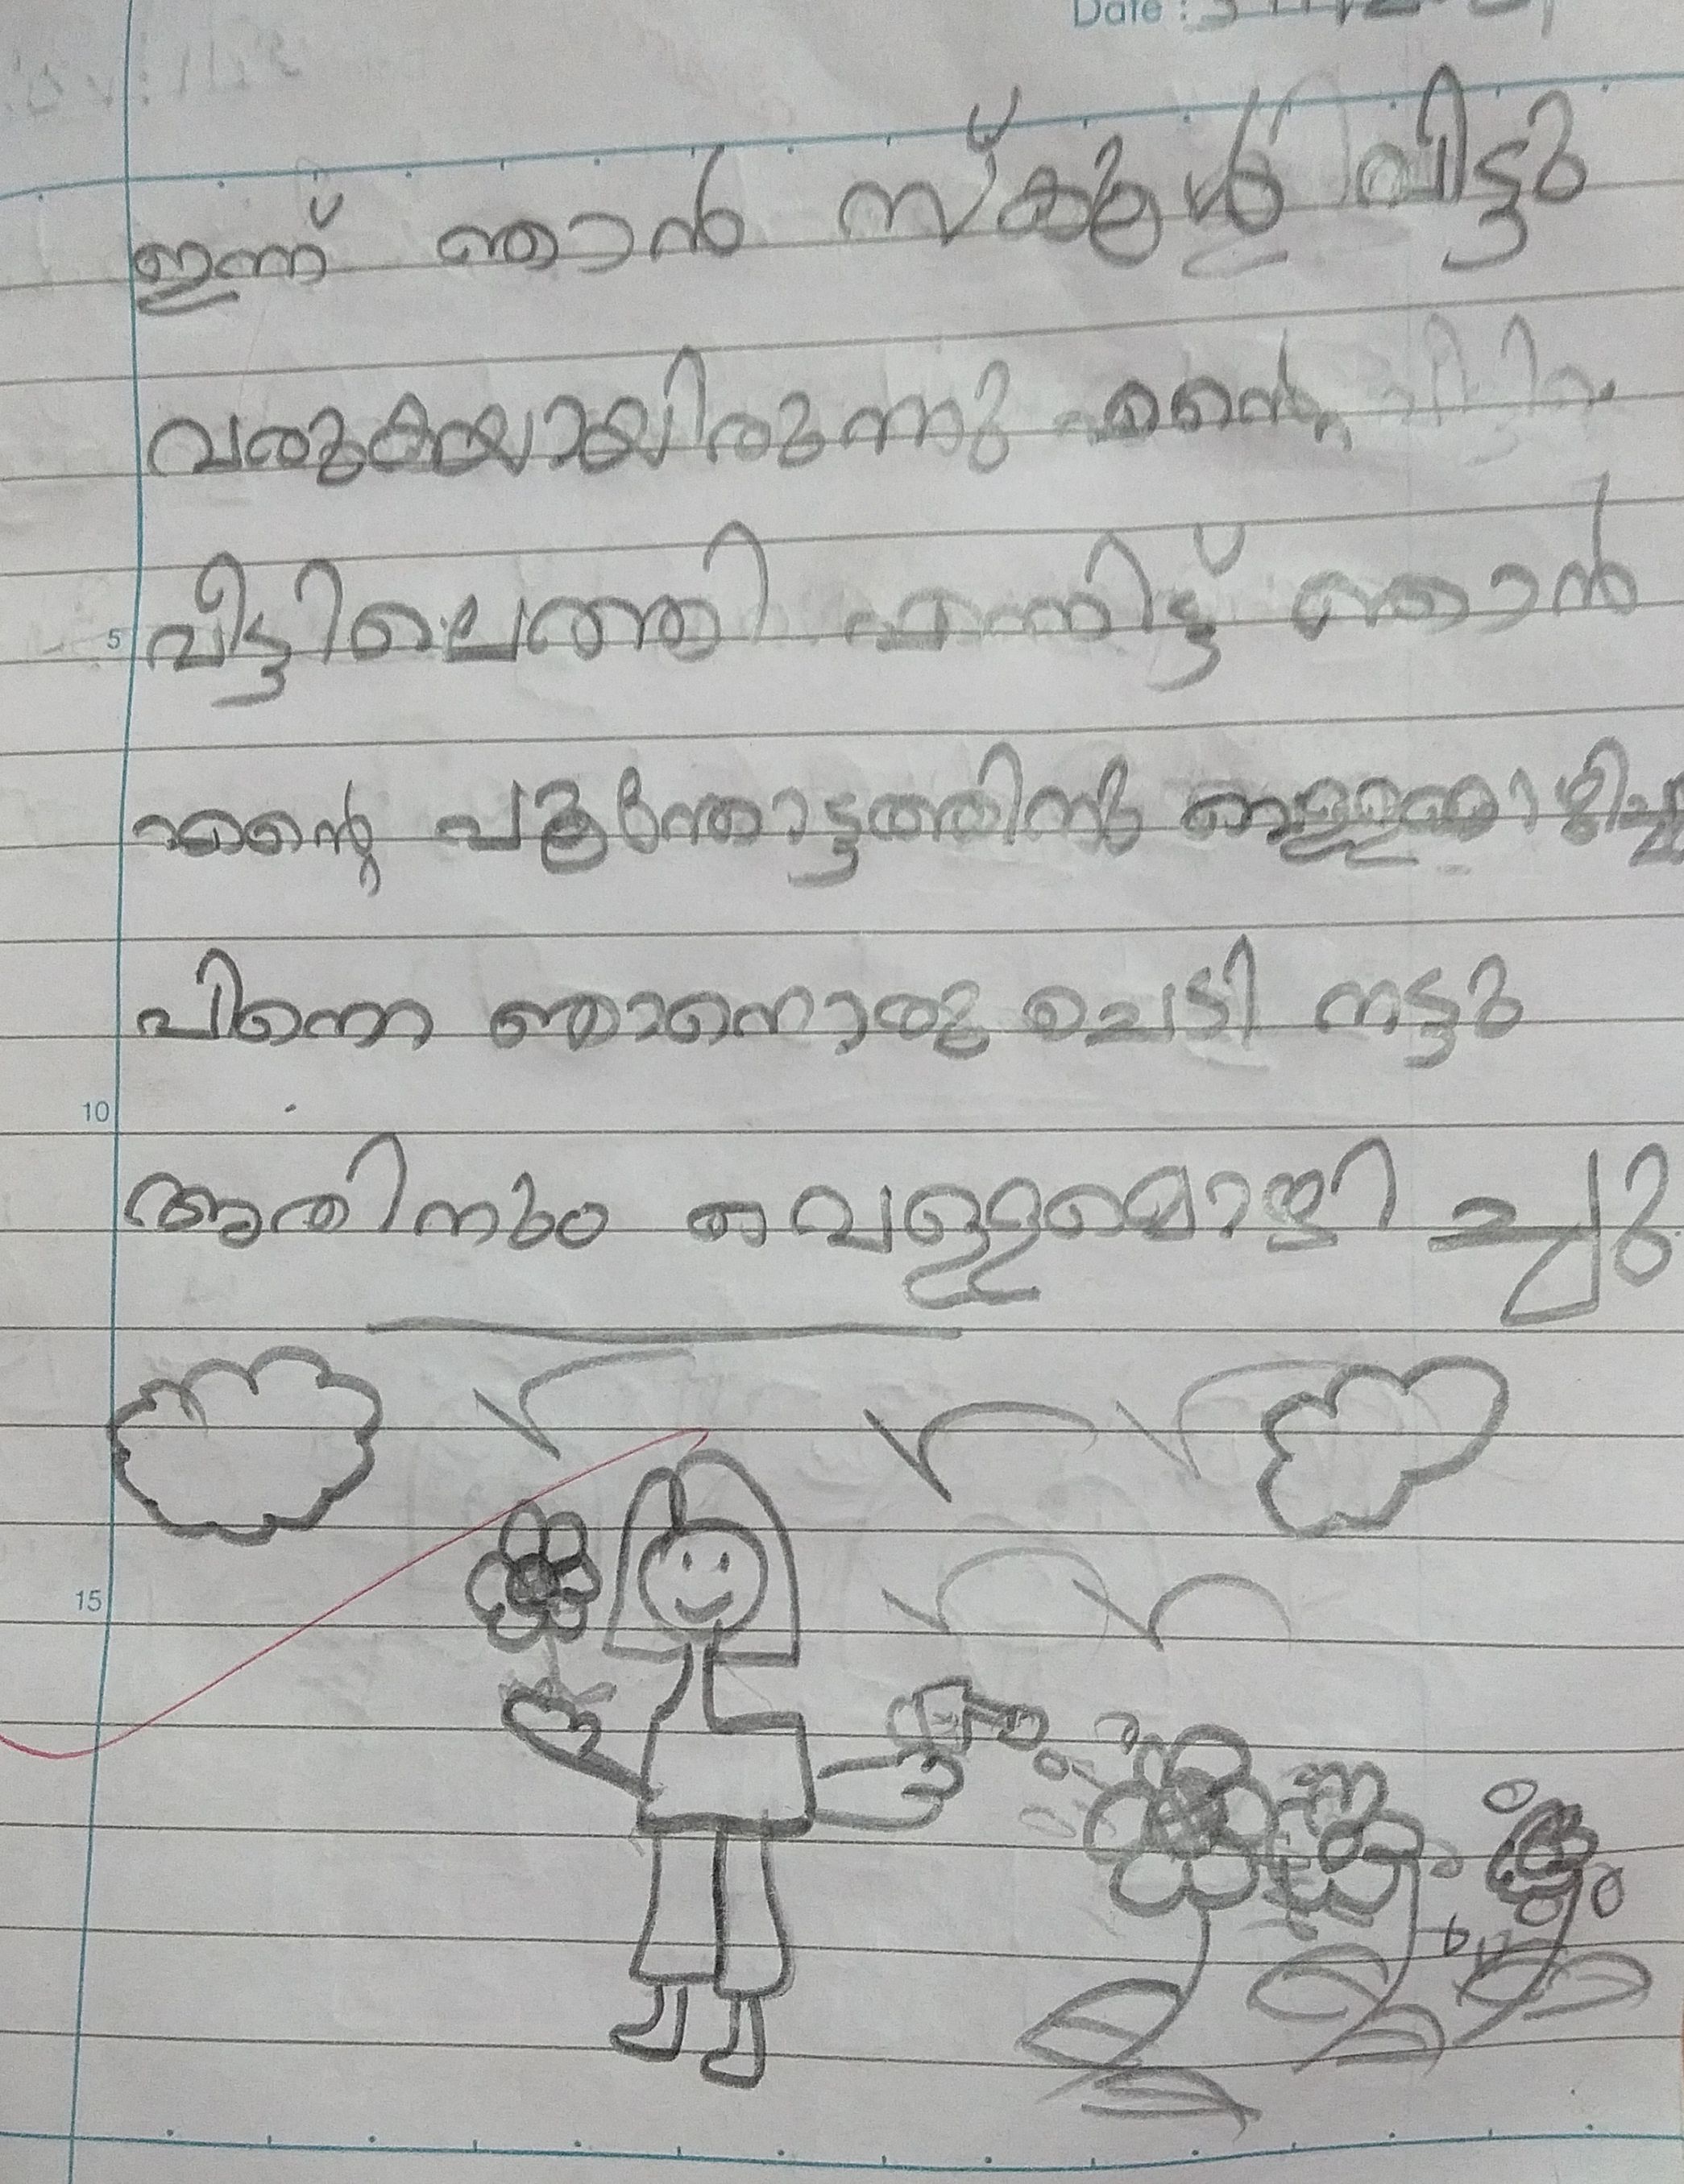 Date :
ഇന്ന് ഞാൻ സ്കൂൾ വിട്ടു
വരുകയായിരുന്നു എന്റെ
വീട്ടിലെത്തി എന്നിട്ട് ഞാൻ
എന്റെ പൂന്തോട്ടത്തിൽ
5
പിന്നെ ഞാനൊരു ചെടി നട്ടു
10
അതിനും വെള്ളമൊഴിച്ചു
15